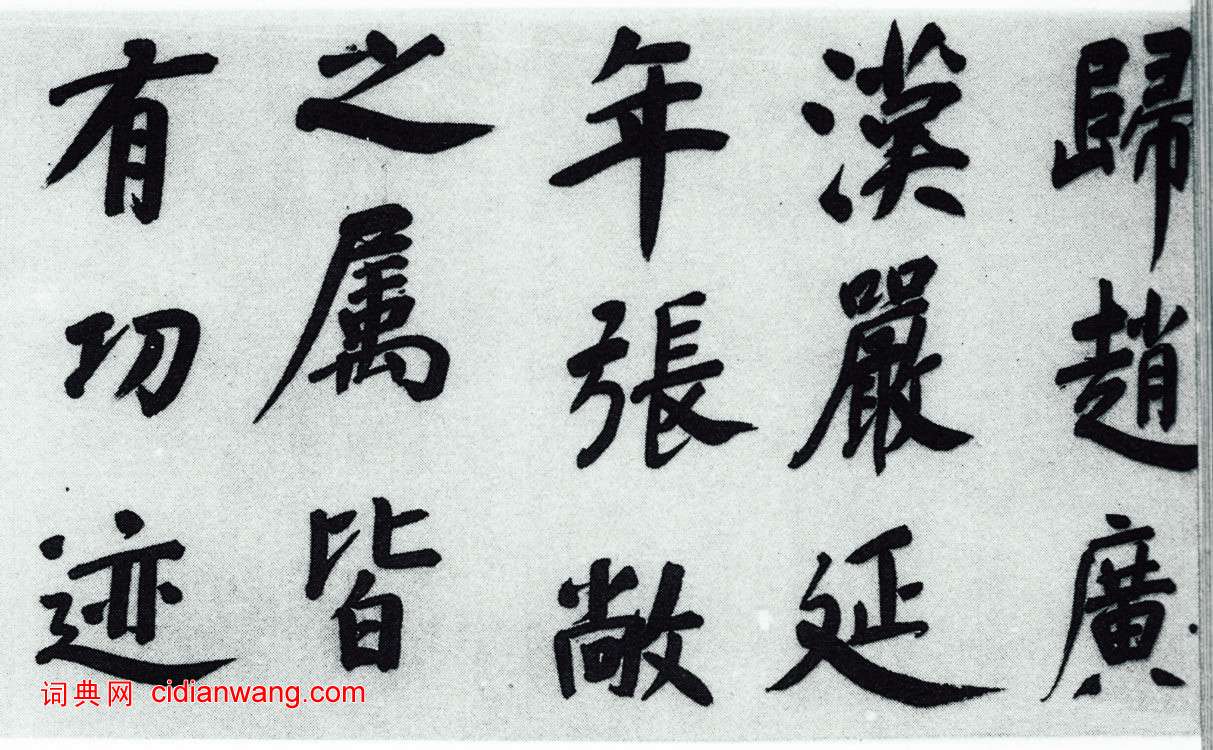 歸趙廣
漢嚴延
年張敞
之属皆
有功迹
词典网 cidianwang.com